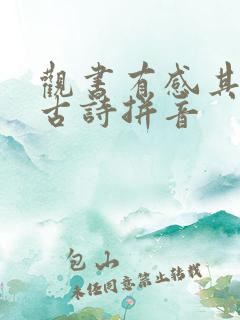 觀書有感其
古詩拼音
包山
未經同意禁止轉載